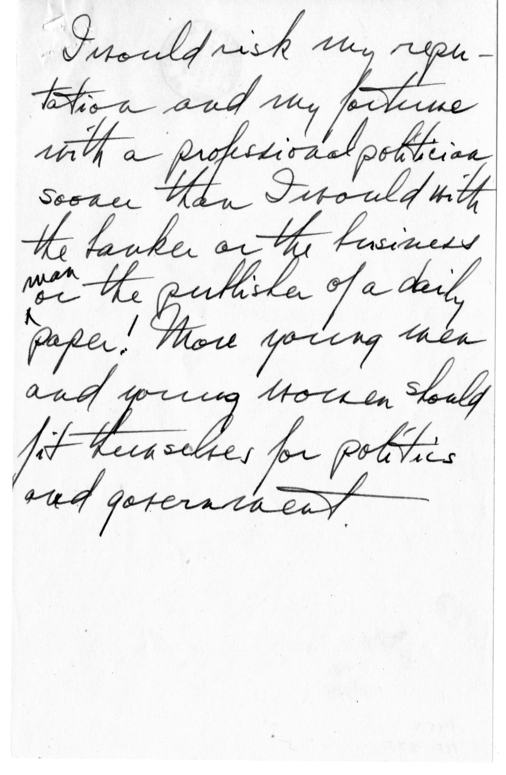 I would risk my repu-
tation and my fortune
with a professional politician
sooner than I would with
the banker or the business
man
or the publisher of a daily
paper! More young men
and young women should
fit themselves for politics
and government.